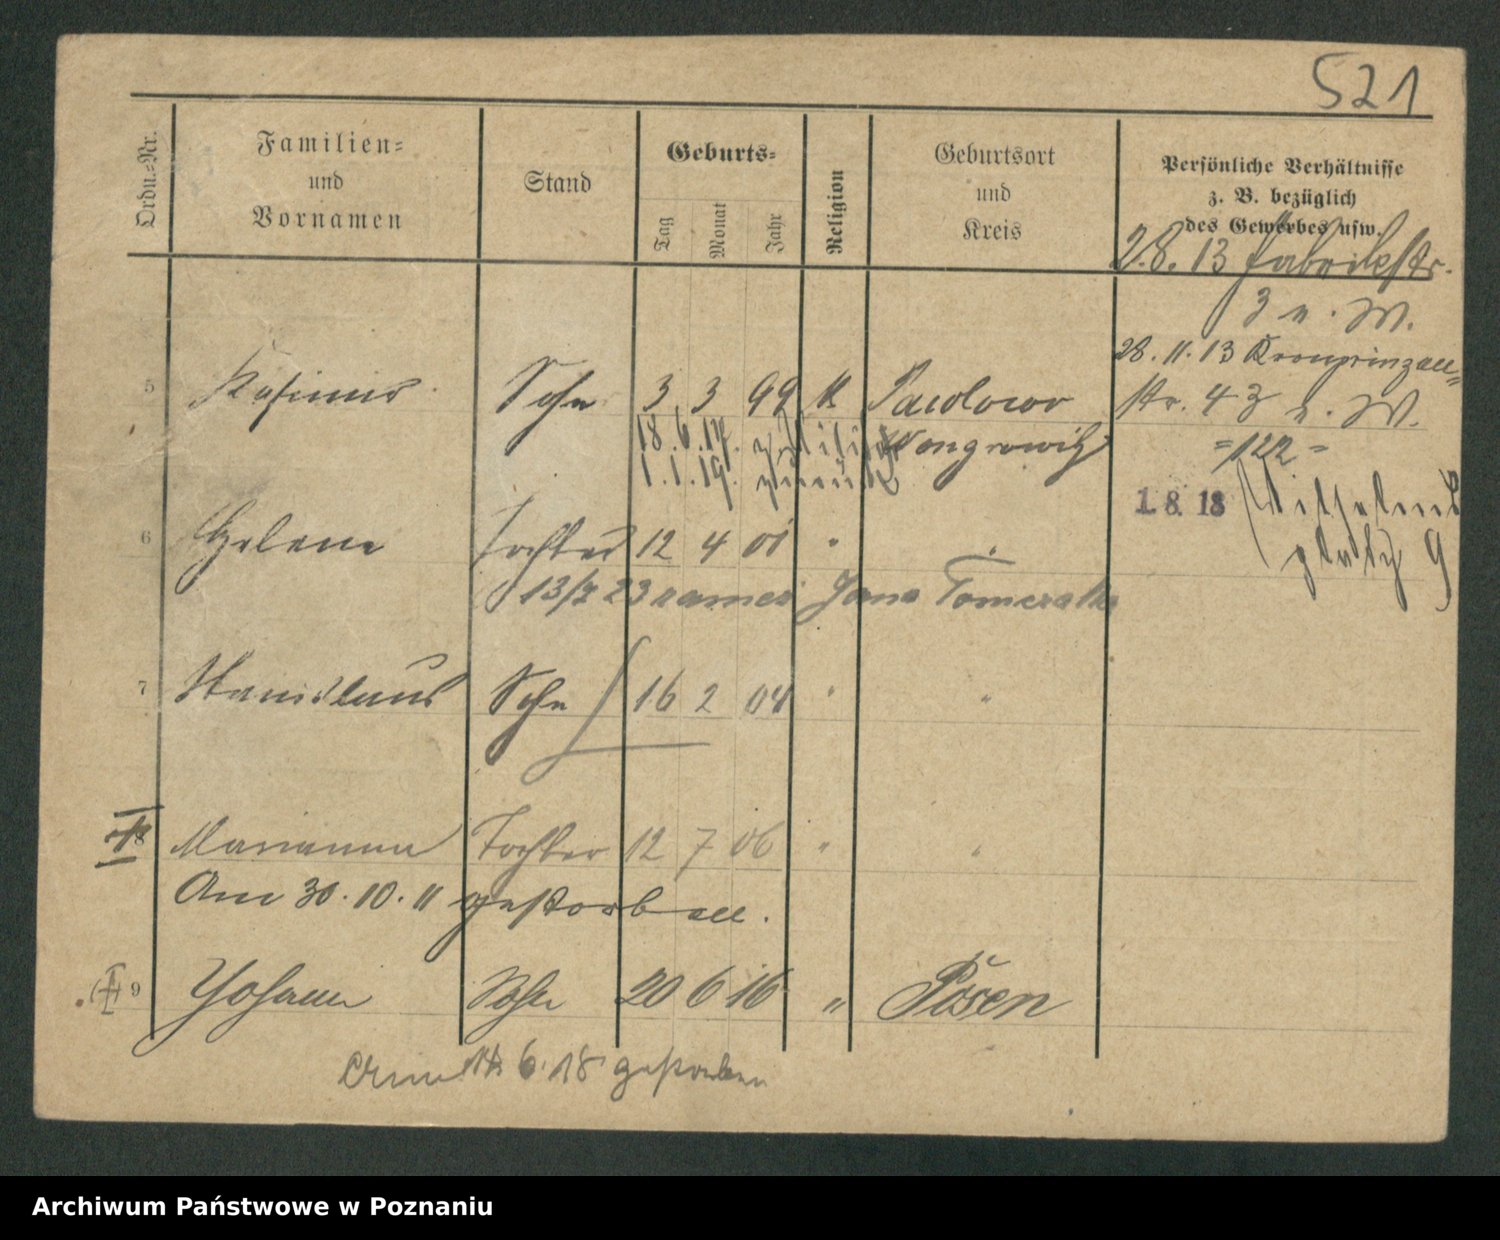 521
Ordn.-Nr.
Familien-
und
Vornamen
Stand
Geburts-
Tag
Monat
Jahr
Religion
Geburtsort
und
Kreis
Persönliche Verhältnisse
z. B. bezüglich
des Gewerbes usw.
2.8.13 Fabrikstr.
3 n. W.
28.11.13 Kronprinzen-
str. 43 n. W.
=122=
1.8.18 Wilhelms
platz 9
5 Kasimir Sohn 3 3 99 K Pawlowo
18.6.17. z. Militär Wongrowitz
1.1.19. zurück
6 Helene Tochter 12 4 01 "
13/2 23 zamęż Jana
7 Stanislaus Sohn 16 2 04 " "
8 Marianna Tochter 12 7 06 " "
Am 30.10.11 gestorben.
9 Johann Sohn 20 6 16 " Posen
Am 14.6.18 gestorben
Archiwum Państwowe w Poznaniu